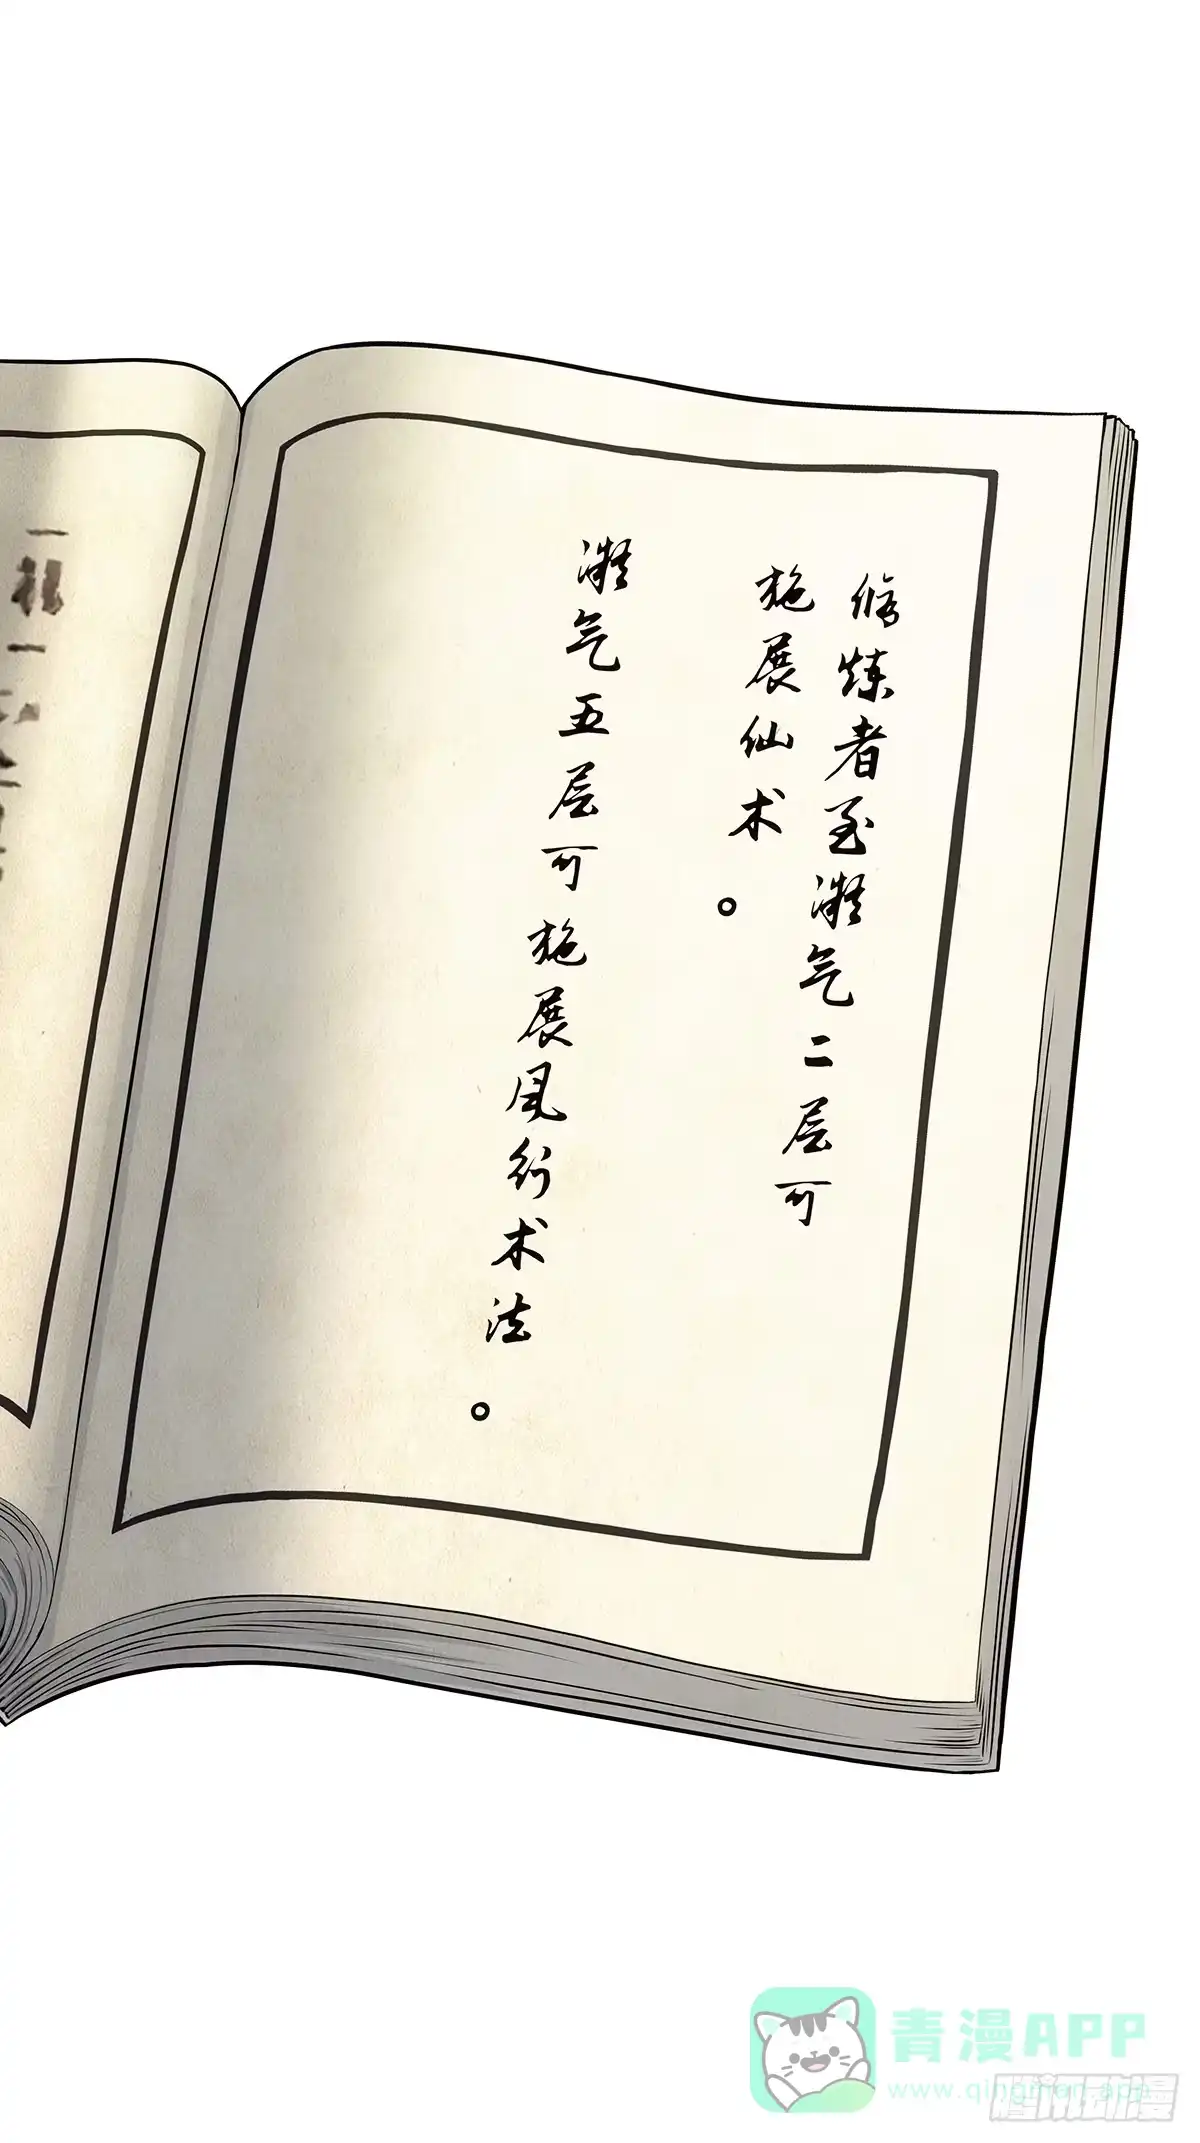 修炼者至凝气二层可
施展仙术。
凝气五层可施展风行术法。
青漫APP
www.qingman.app
腾讯动漫